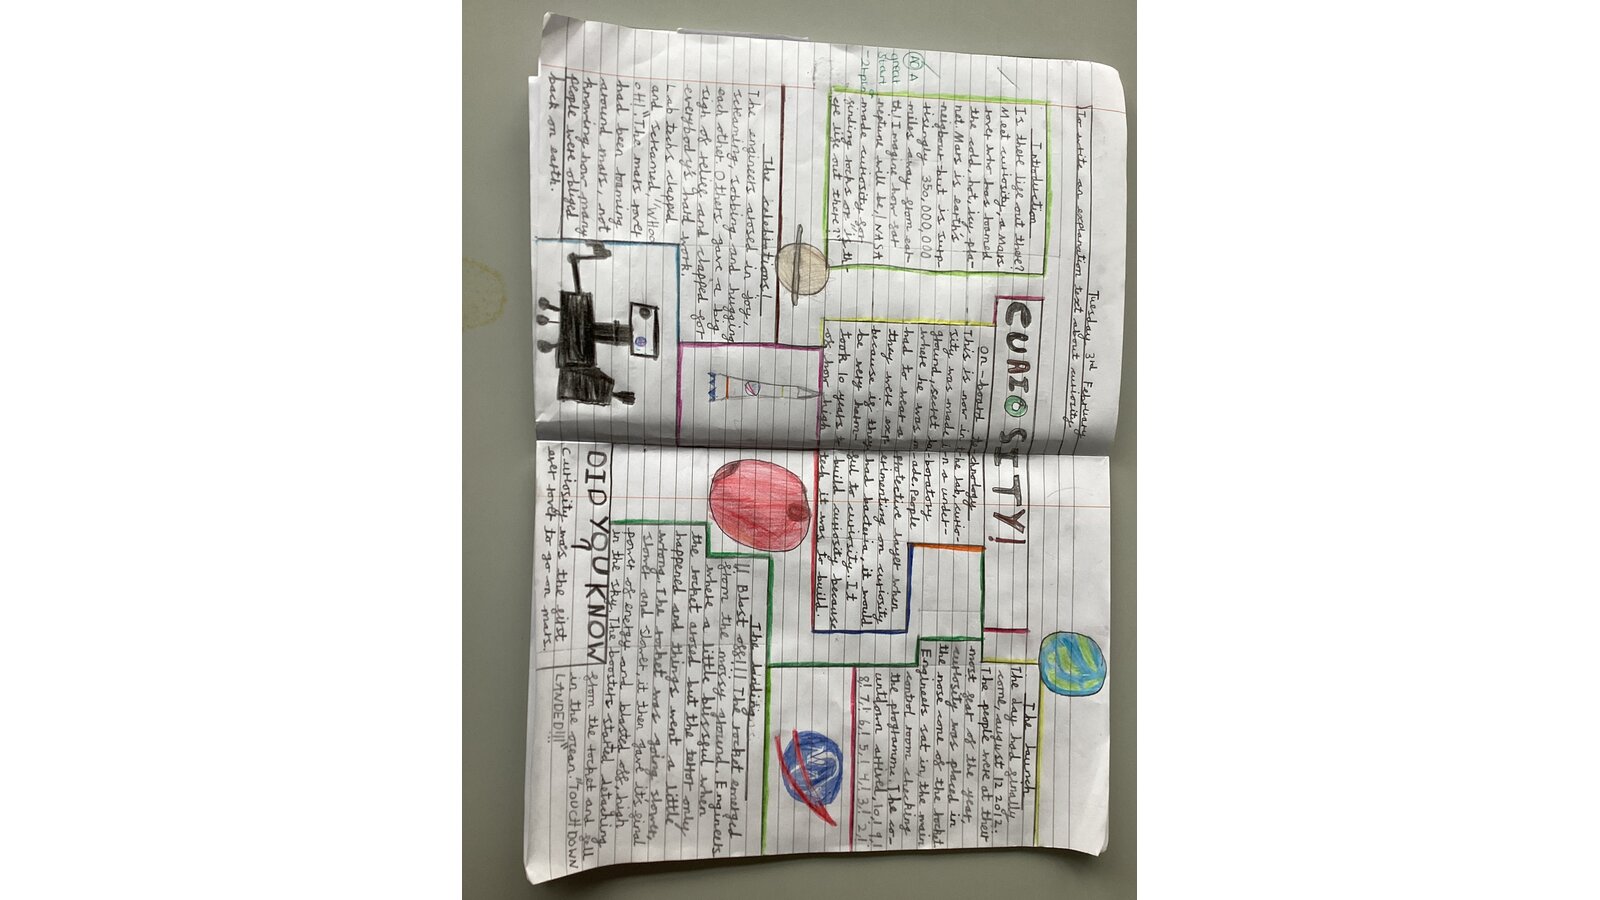 Tuesday 3rd February
To write an explanation text about curiosity
CURIOSITY!
A
great
start
Introduction
Is there life out there?
Meet curiosity, a Mars
rover who has roamed
the cold, hot, icy pla-
net. Mars is earths
neighbour but is surp-
risingly 350,000,000
miles away from ear-
th! Imagine how far
neptune will be! NASA
made curiosity for
finding rocks or, is th-
ere life out there?
On-board technology
This is now in the lab, curio-
sity was made in a under-
ground, secret laboratory
where he was made. People
had to wear a protective layer when
they were experimenting on curiosity
because if they had bacteria it would
be very harmful to curiosity. It
took 10 years to build curiosity because
of how high tech it was to build.
The launch
The day had finally
come, august 12 2012.
The people were at their
most fear of the year,
curiosity was placed in
the nose cone of the rocket
Engineers sat in, the main
control room checking
the programme. The co-
untdown arrived, 10,! 9,!
8,! 7,! 6,! 5,! 4,! 3,! 2,!
The landing
!! Blast off!!! The rocket emerged
from the mossy ground. Engineers
where a little blissful when
the rocket arosed but the terror only
happened and things went a little
wrong. The rocket was going slower,
slower and slower, it then gave it's final
power of energy and blasted off, high
in the sky. The boosters started detaching
from the rocket and fell
in the ocean "TOUCHDOWN
LANDED!!!!"
The celebrations!
The engineers arosed in joy,
screaming, sobbing and hugging
each other. Others gave a big
sigh of relief and clapped for
everybody's hard work.
Lab techs clapped
and screamed, "WHOO
OH!" The mars rover
had been roaming
around mars, not
knowing how many
people were obliged
back on earth.
DID YOU KNOW
Curiosity was the first
ever rover to go on mars.